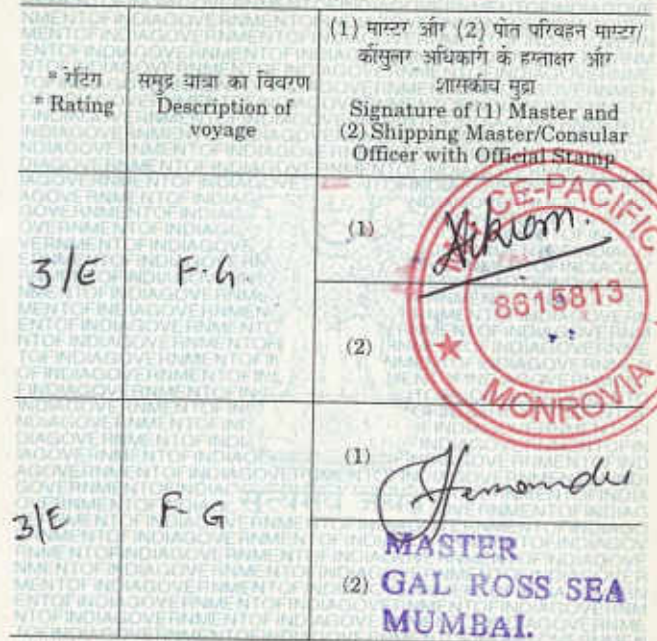 * रेटिंग
* Rating
समुद्र यात्रा का विवरण
Description of
voyage
(1) मास्टर और (2) पोत परिवहन मास्टर/
कौंसुलर अधिकारी के हस्ताक्षर और
शासकीय मुद्रा
Signature of (1) Master and
(2) Shipping Master/Consular
Officer with Official Stamp
3/E
F.G.
(1)
(2)
CE-PACIFIC
8615813
MONROVIA
3/E
F-G
(1)
(2)
MASTER
GAL ROSS SEA
MUMBAI.